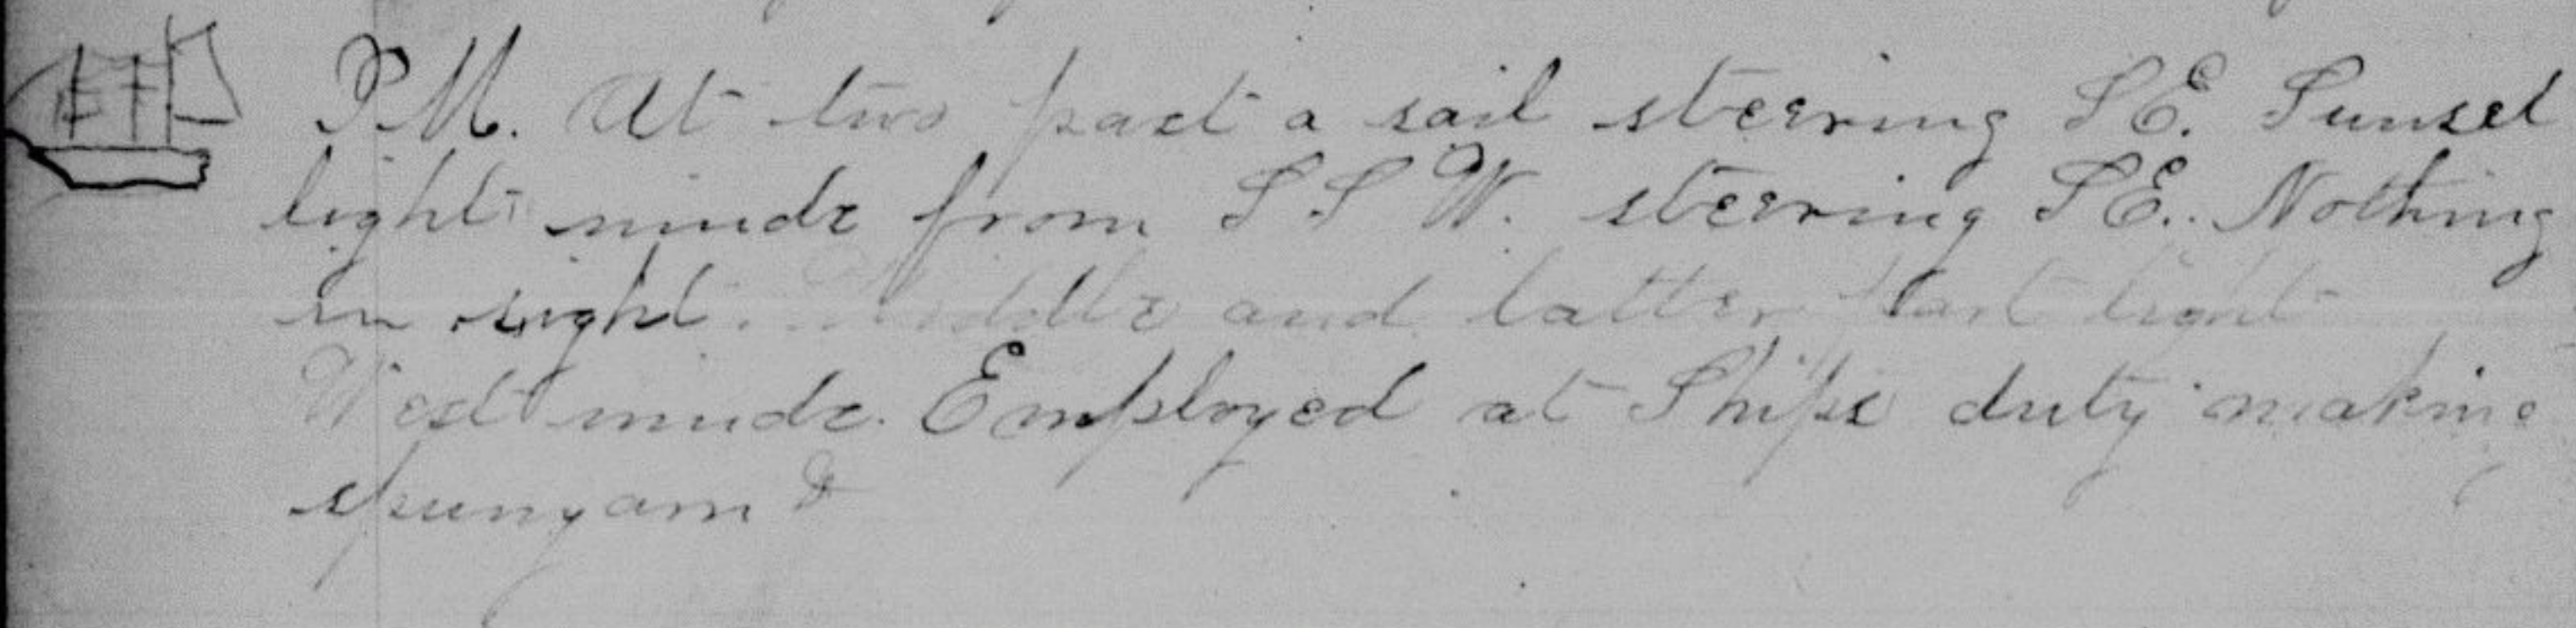 P.M. At two past a sail steering S.E. Sunset
light winds from S.S.W. steering S.E. Nothing
in sight. Middle and latter part light
West winds. Employed at Ships duty making
spunyarn &